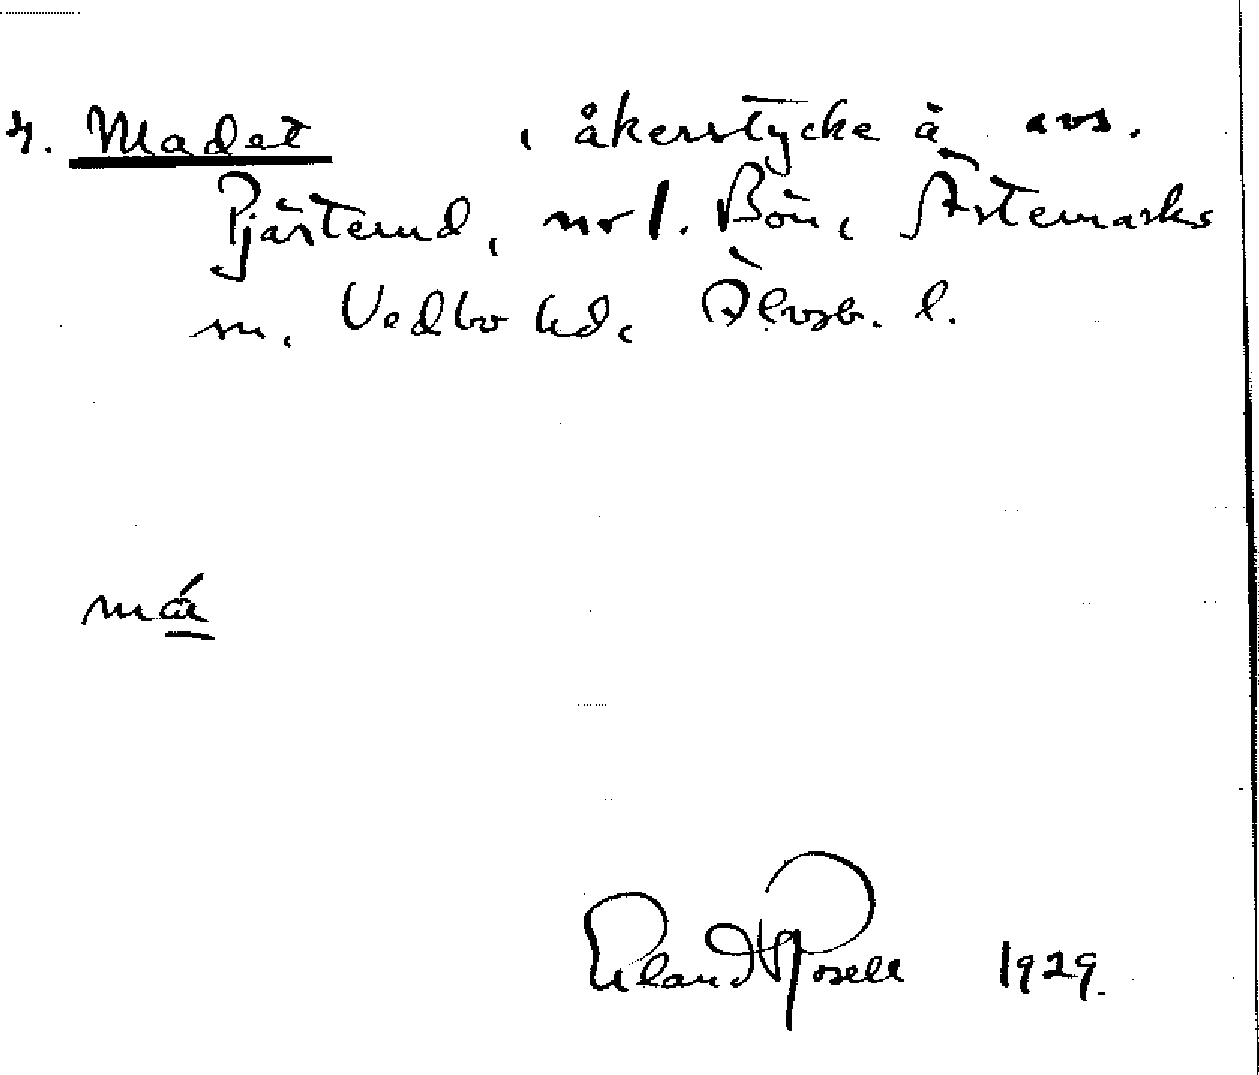 4. Madet , åkerstycke å avs.
Pjästerud, nr 1. Bön, Ärtemarks
sn. Vedbo hd, Älvsb. l.
má
Erland Rosell 1929.